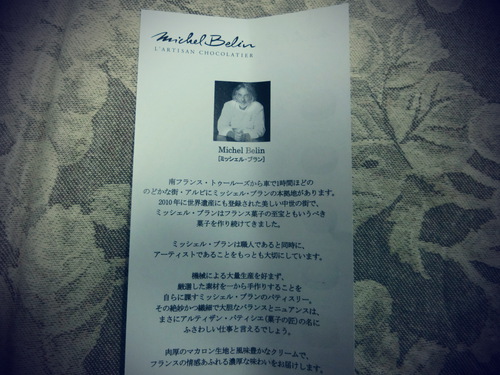 Michel Belin
L'ARTISAN CHOCOLATIER
Michel Belin
[ミッシェル・ブラン]
南フランス・トゥールーズから車で1時間ほどの
のどかな街・アルビにミッシェル・ブランの本拠地があります。
2010年に世界遺産にも登録された美しい中世の街で、
ミッシェル・ブランはフランス菓子の至宝ともいうべき
菓子を作り続けてきました。
ミッシェル・ブランは職人であると同時に、
アーティストであることをもっとも大切にしています。
機械による大量生産を好まず、
厳選した素材を一から手作りすることを
自らに課すミッシェル・ブランのパティスリー。
その絶妙かつ繊細で大胆なバランスとニュアンスは、
まさにアルティザン・パティシエ(菓子の匠)の名に
ふさわしい仕事と言えるでしょう。
肉厚のマカロン生地と風味豊かなクリームで、
フランスの情感あふれる濃厚な味わいをお届けします。